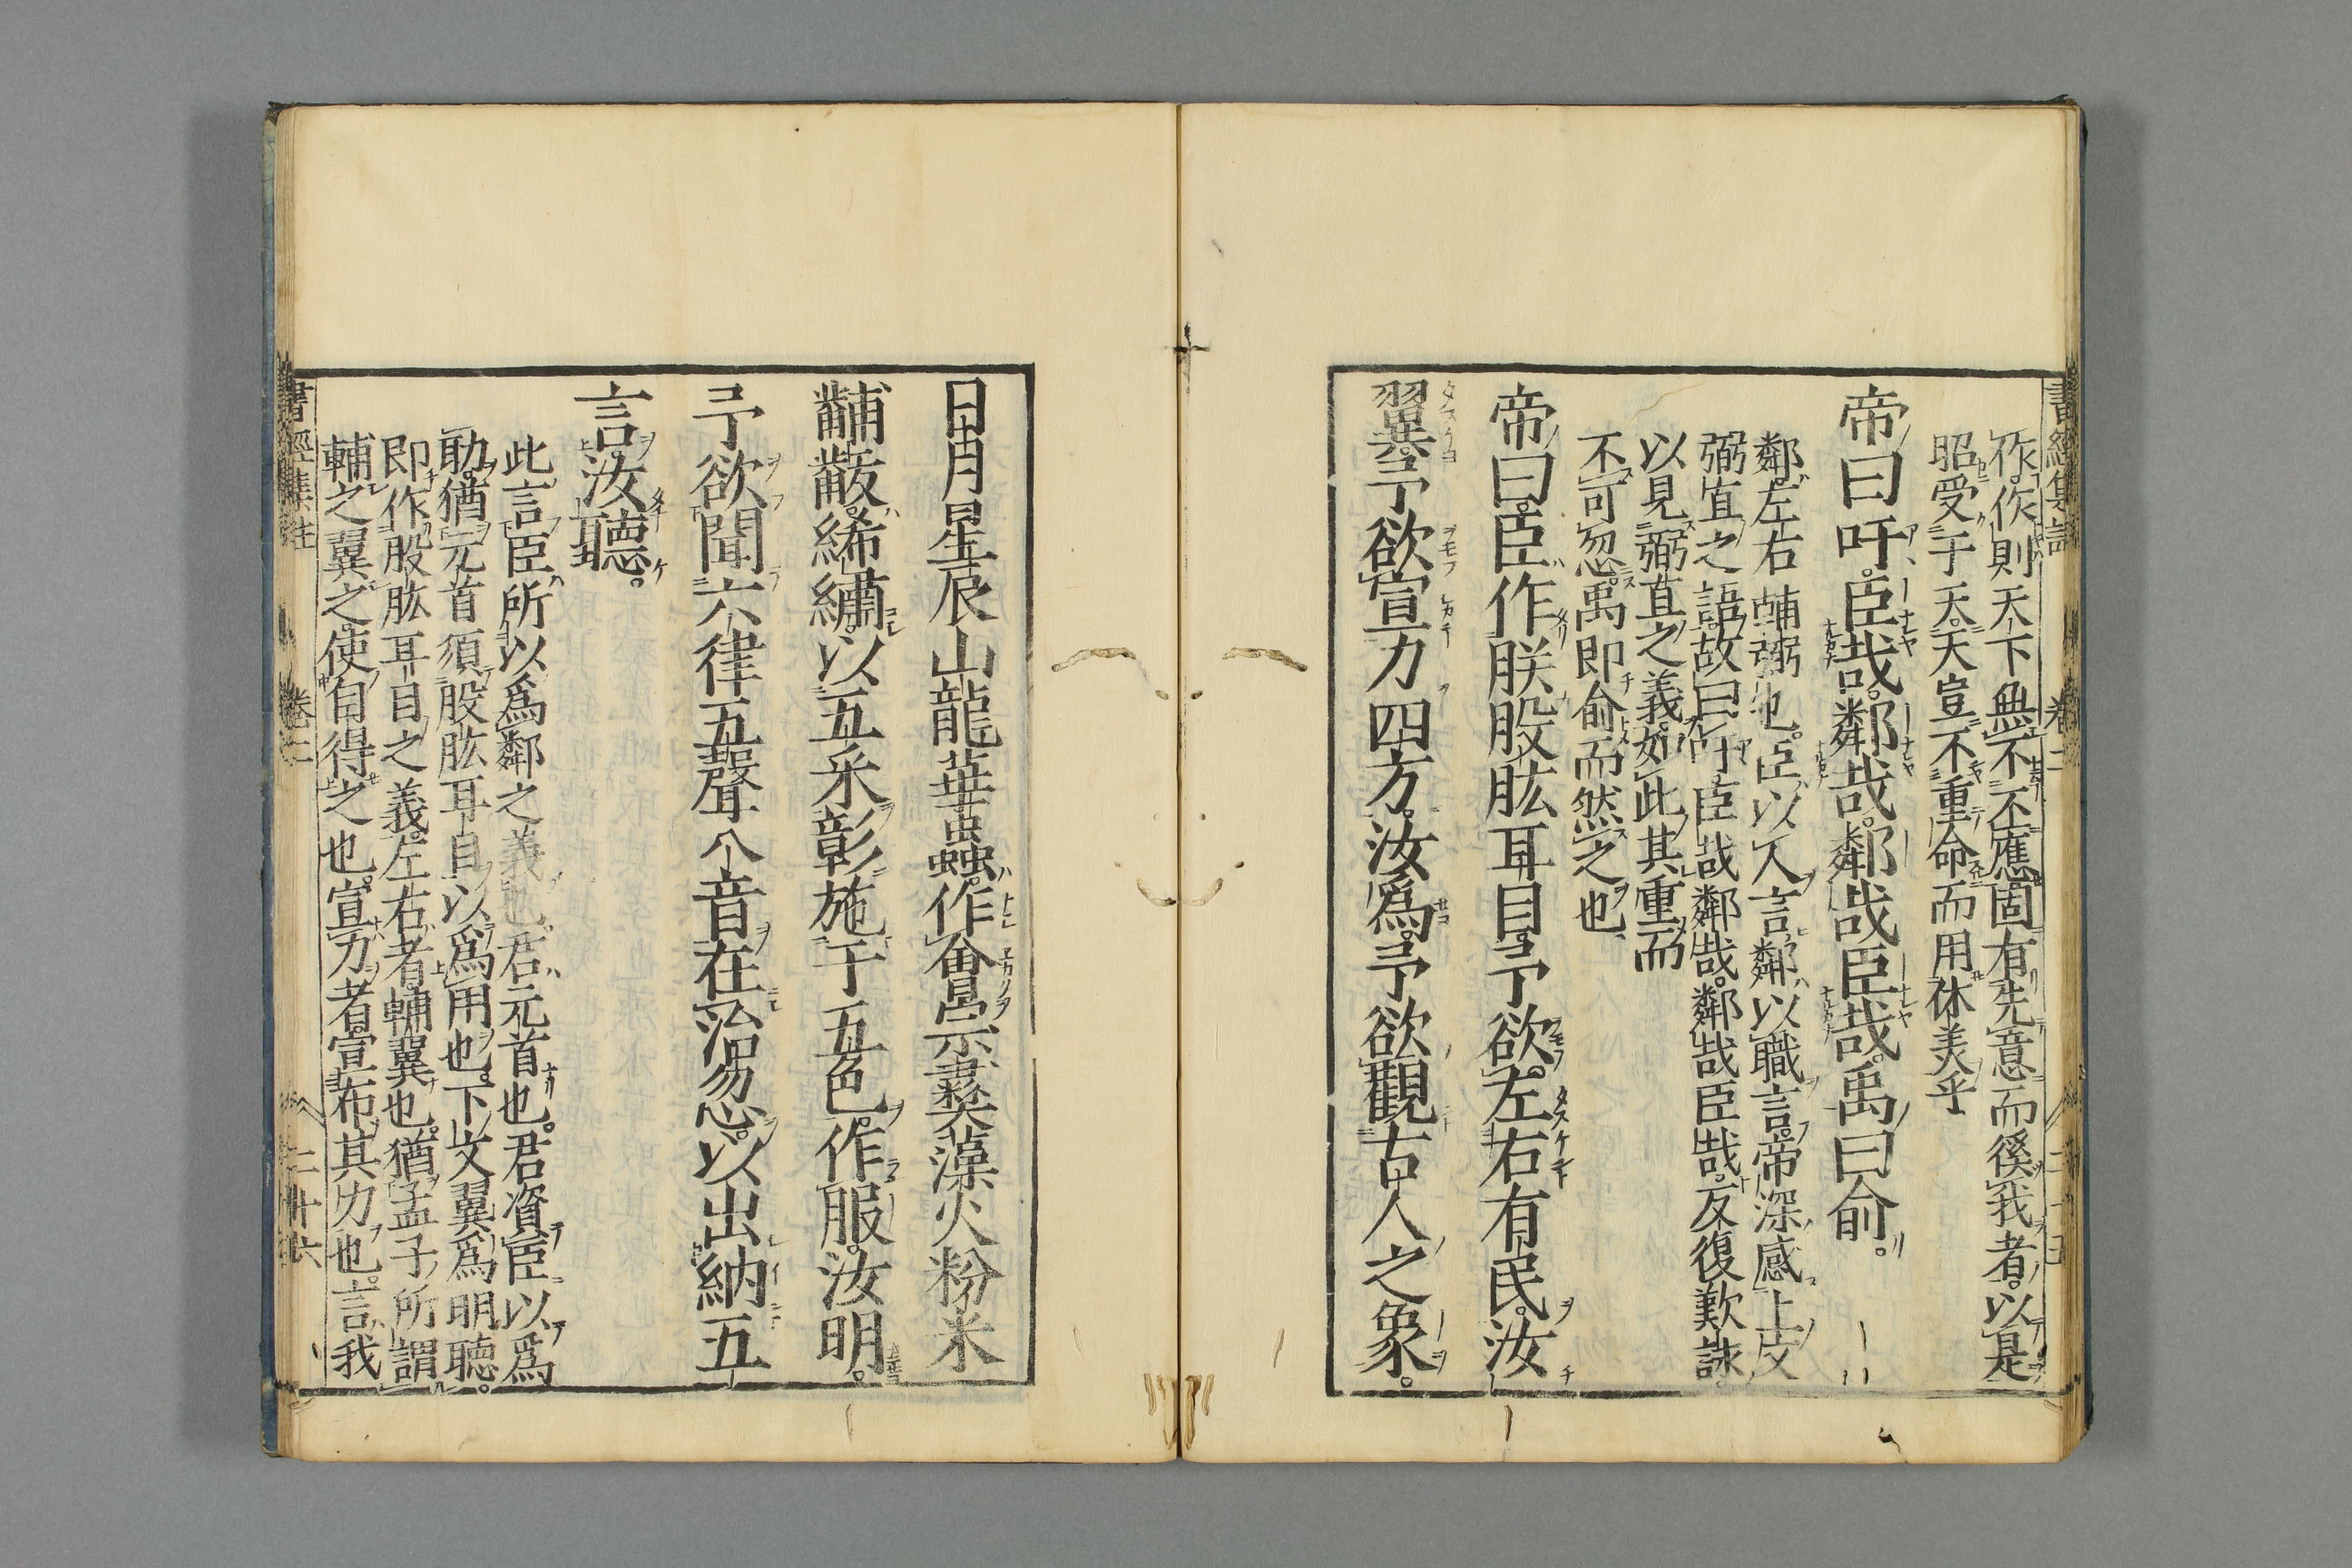 作。作則天下無不丕應固有先意而徯我者。以是
昭受于天。天豈不重命而用休美乎
帝曰吁。臣哉。鄰哉。鄰哉臣哉。禹曰俞。
鄰。左右輔弼也。臣以人言。鄰以職言。帝深感上文
弼直之語。故曰吁臣哉鄰哉。鄰哉臣哉。反復歎詠。
以見弼直之義。如此其重而
不可忽。禹即俞而然之也
帝曰。臣作朕股肱耳目。予欲左右有民。汝
翼。予欲宣力四方。汝爲。予欲觀古人之象。
日月星辰山龍華蟲。作會。宗彝藻火粉米
黼黻。絺繡。以五采彰施于五色。作服。汝明。
予欲聞六律五聲八音在治忽。以出納五
言。汝聽。
此言臣所以爲鄰之義也。君元首也。君資臣以爲
助。猶元首須股肱耳目以爲用也。下文翼爲明聽。
即作股肱耳目之義。左右者輔翼也。猶孟子所謂
輔之翼之。使自得之也。宣力者。宣布其力也。言我
書經集註 卷二 二十六